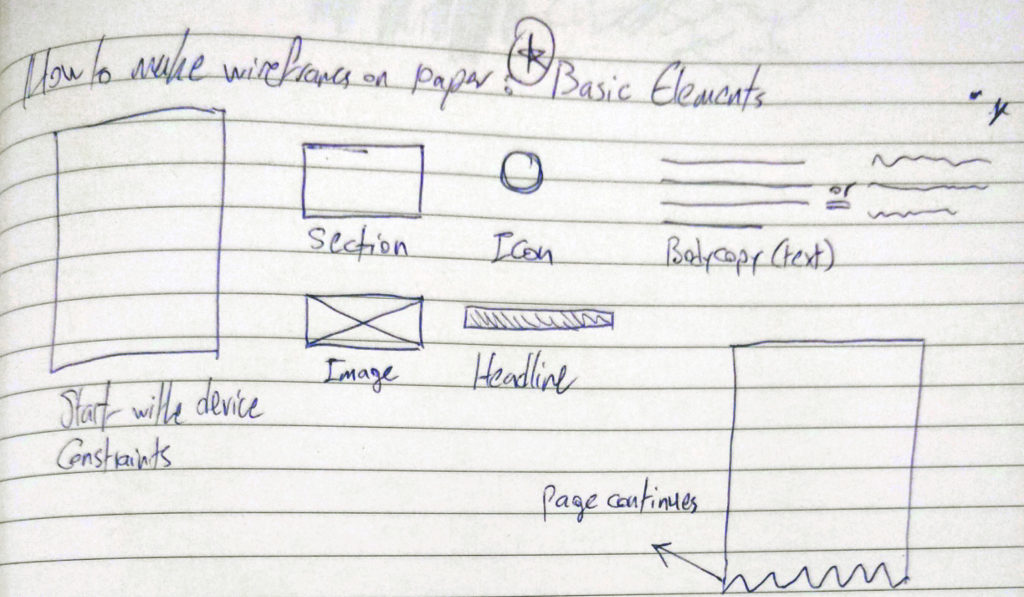 How to make wireframes on paper: Basic Elements
Section
Icon
or
Bodycopy (text)
Image
Headline
Start with device
Constraints
Page continues